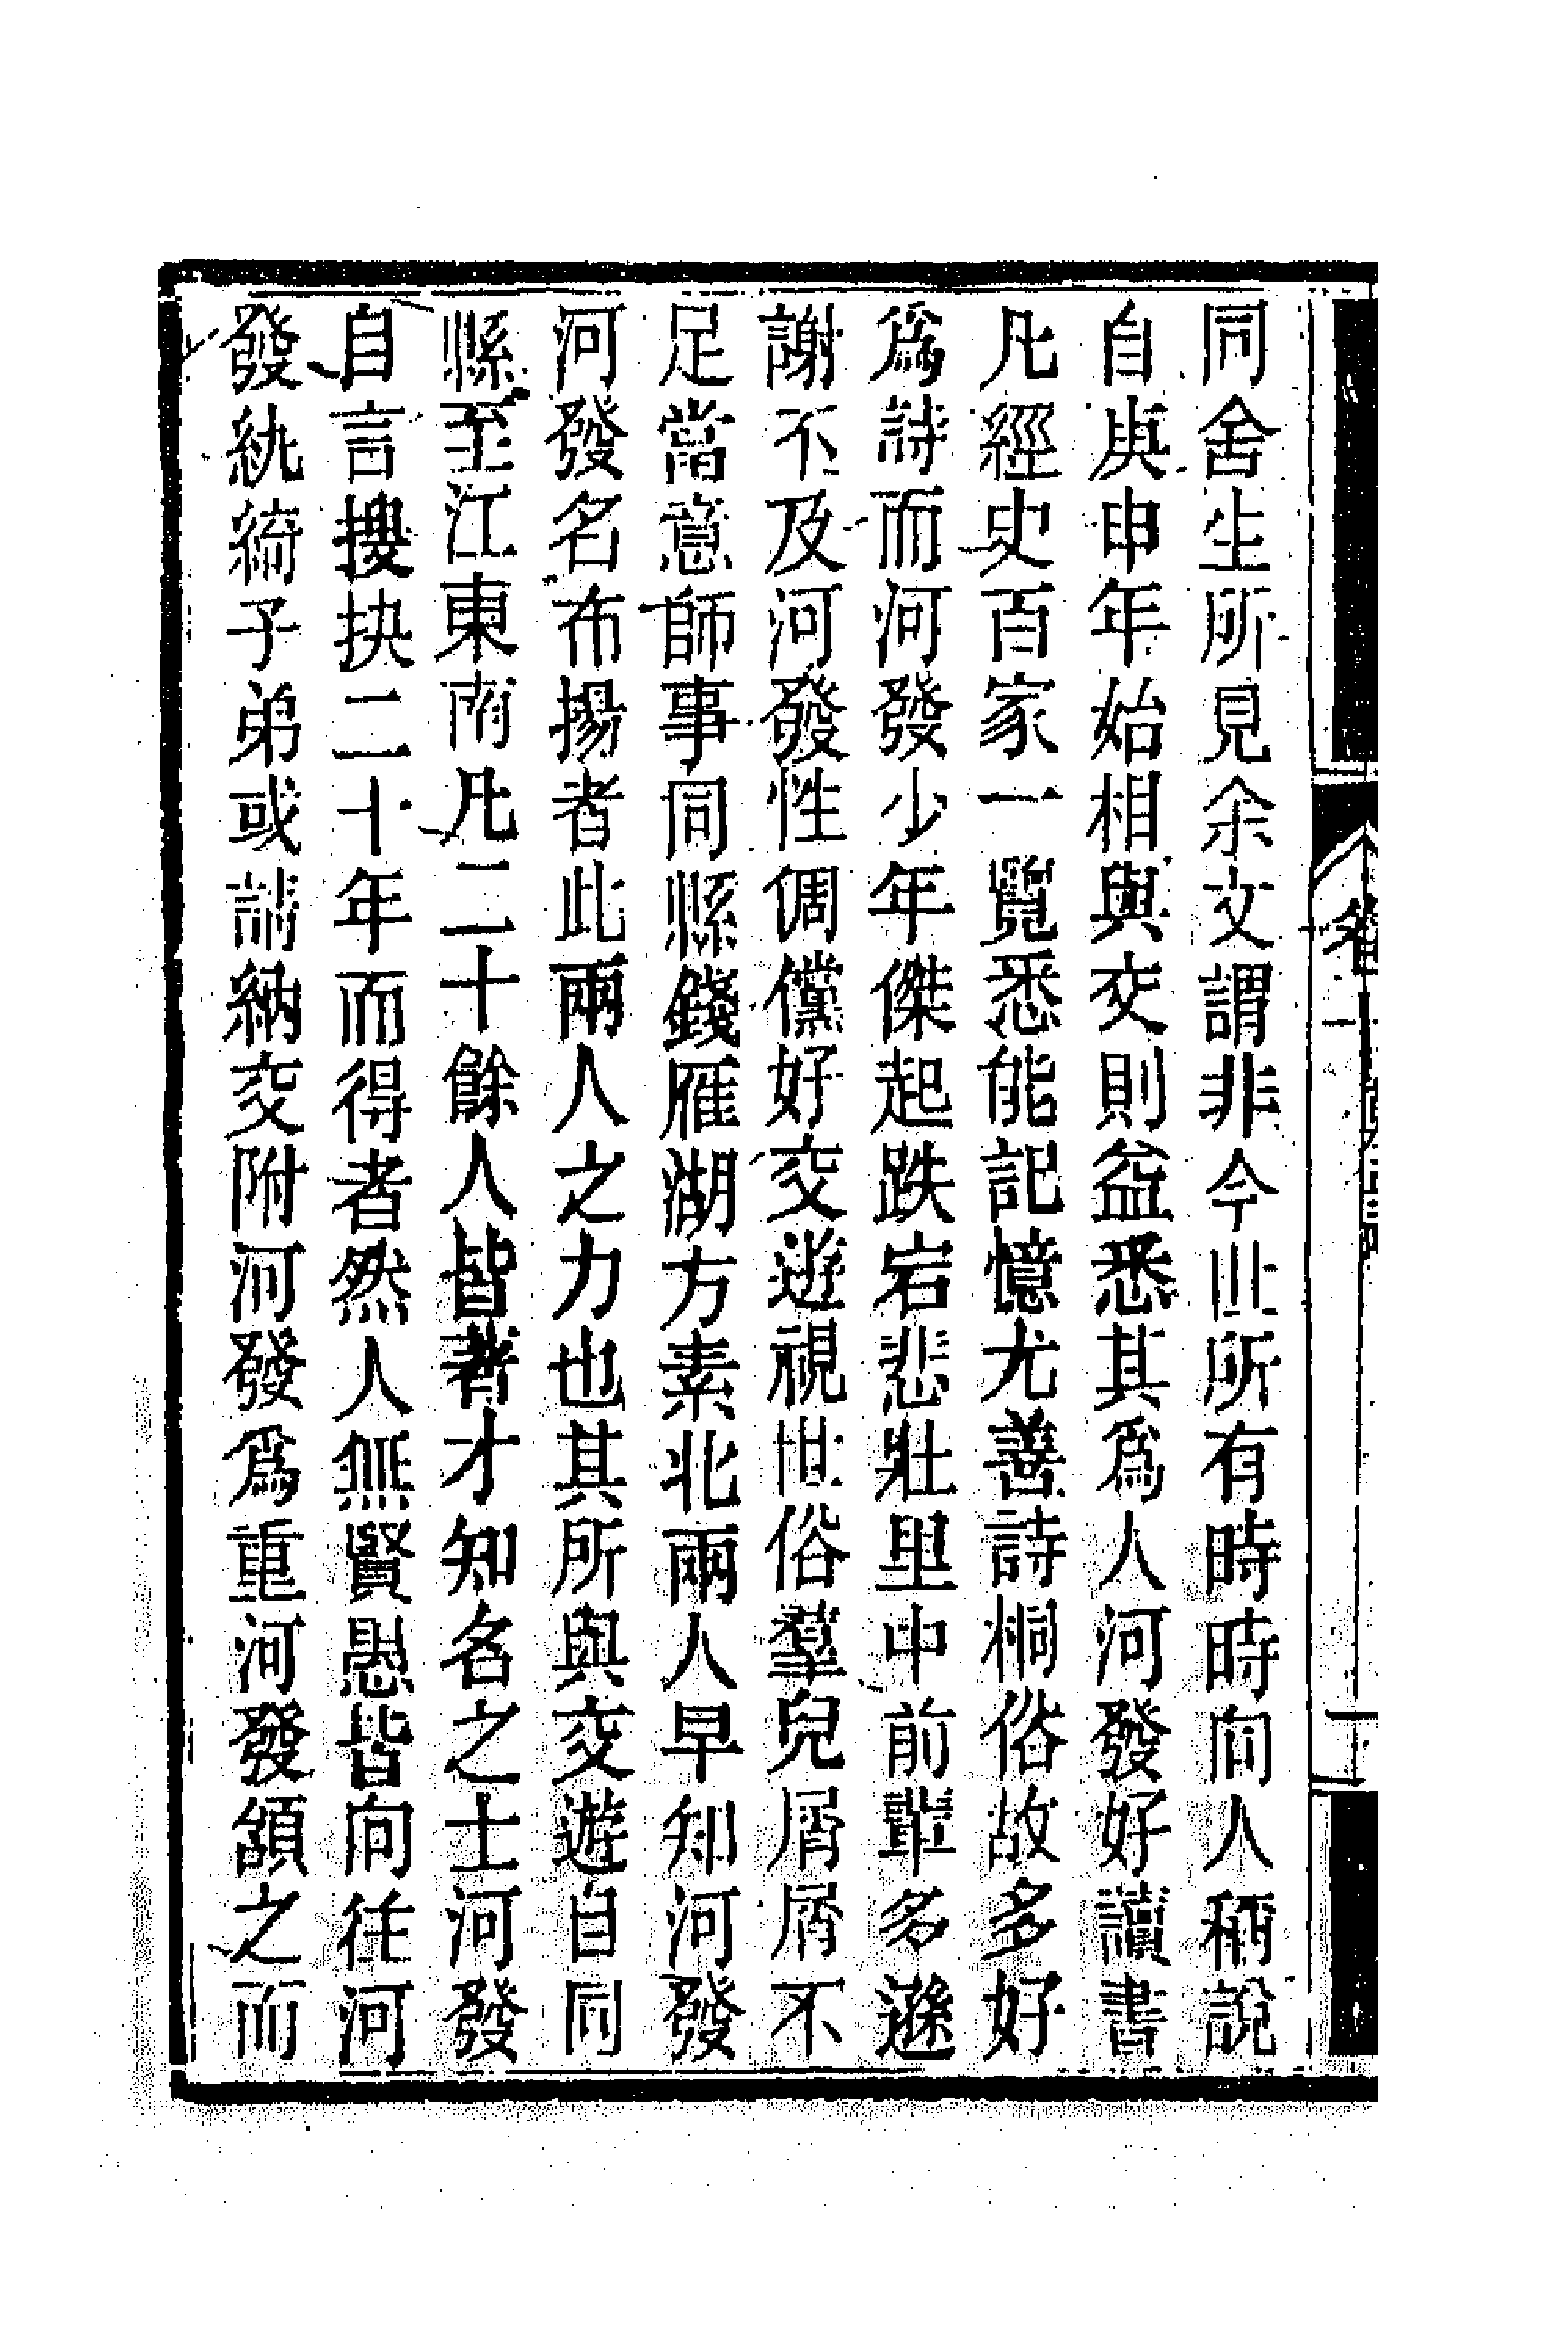 同舍生所見余文謂非今世所有時時向人稱說
自庚申年始相與交則益悉其爲人河發好讀書
凡經史百家一覽悉能記憶尤善詩桐俗故多好
爲詩而河發少年傑起跌宕悲壯里中前輩多遜
謝不及河發性倜儻好交遊視世俗羣兒屑屑不
足當意師事同縣錢雁湖方素北兩人早知河發
河發名布揚者此兩人之力也其所與交遊自同
縣至江東南凡二十餘人皆著才知名之士河發
自言搜抉二十年而得者然人無賢愚皆向往河
發紈綺子弟或請納交附河發爲重河發頷之而